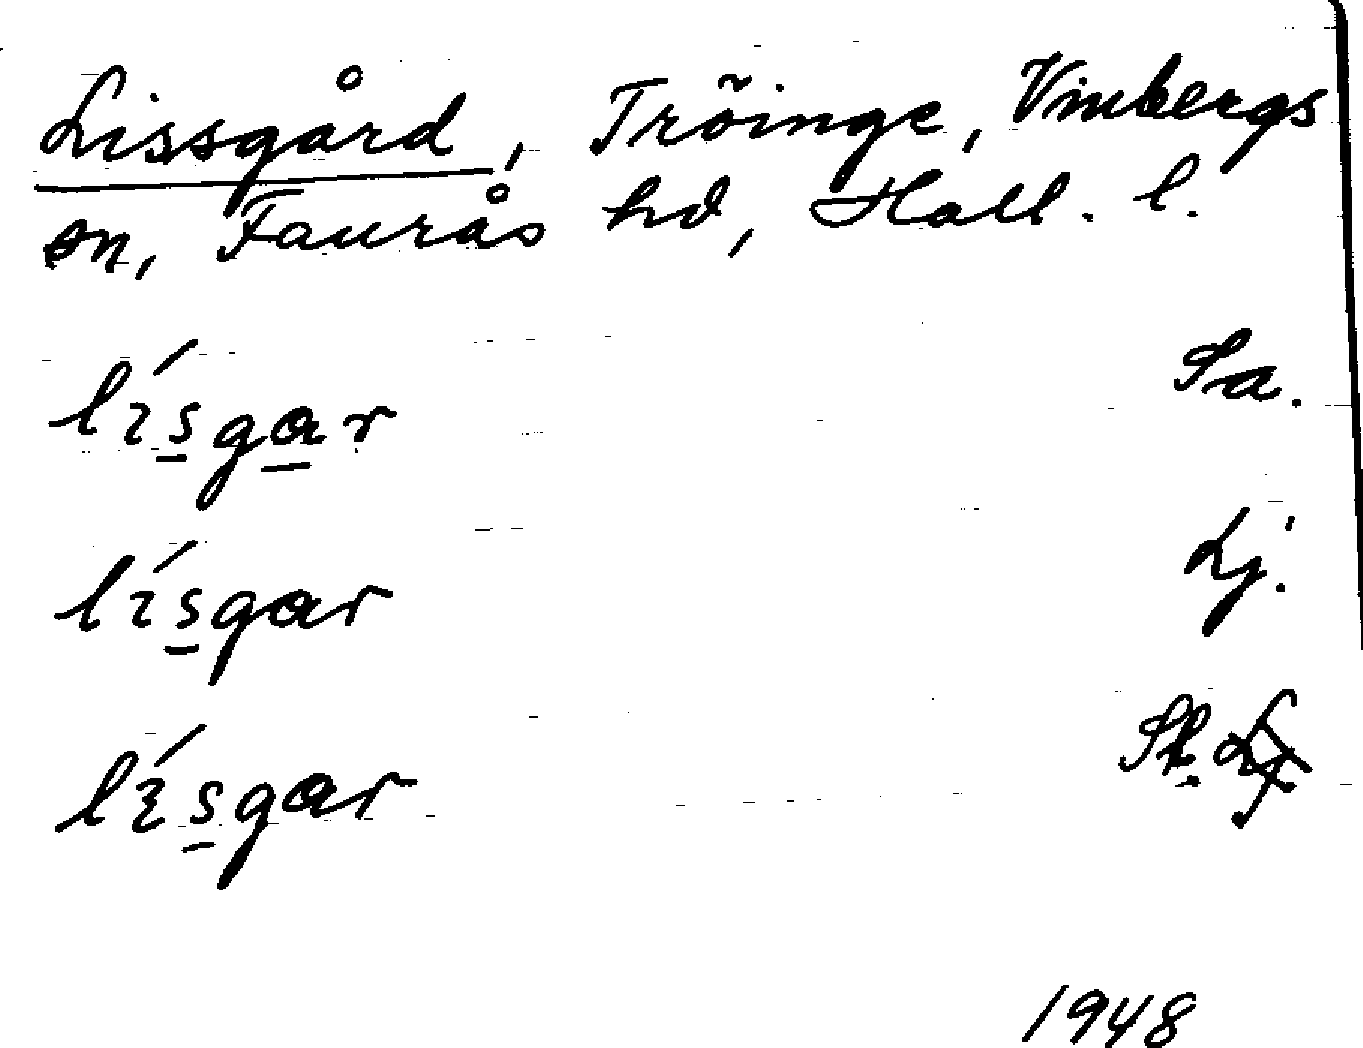 Lissgård, Tröinge, Vinbergs
sn, Faurås hd, Hall. l.
lísgar Sa.
lísgar Lj.
lísgar Sk.
1948